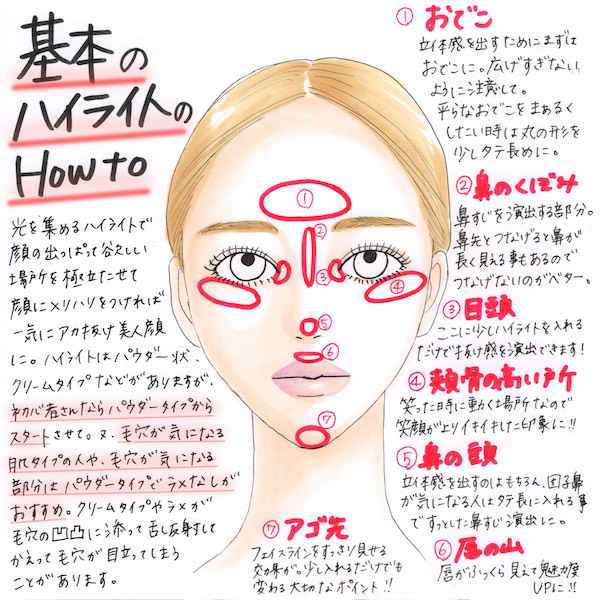 基本の
ハイライトの
How to
光を集めるハイライトで
顔の出っぱって欲しい
場所を極立たせて
顔にメリハリをつければ
一気にアカ抜け美人顔
に。ハイライトはパウダー状、
クリームタイプなどがありますが、
初心者さんならパウダータイプから
スタートさせて。又、毛穴が気になる
肌タイプの人や、毛穴が気になる
部分はパウダータイプでラメなしが
おすすめ。クリームタイプやラメが
毛穴の凹凸に添って乱反射して
かえって毛穴が目立ってしまう
ことがあります。
① おでこ
立体感を出すためにまずは
おでこに。広げすぎない
ように注意して。
平らなおでこをまぁるく
したい時は丸の形を
少しタテ長めに。
② 鼻のくぼみ
鼻すじを演出する部分。
鼻先とつなげると鼻が
長く見える事もあるので
つなげないのがベター。
③ 目頭
ここに少しハイライトを入れる
だけで抜け感を演出できます!
④ 頬骨の高い所
笑った時に動く場所なので
笑顔がよりイキイキした印象に!!
⑤ 鼻の頭
立体感を出すのはもちろん、団子鼻
が気になる人はタテ長に入れる事
ですっとした鼻すじ演出に。
⑥ 唇の山
唇がふっくら見えて魅力度
UPに!!
⑦ アゴ先
フェイスラインをすっきり見せる
効果が。少し入れるだけでも
変わる大切なポイント!!
①
②
③
④
⑤
⑥
⑦